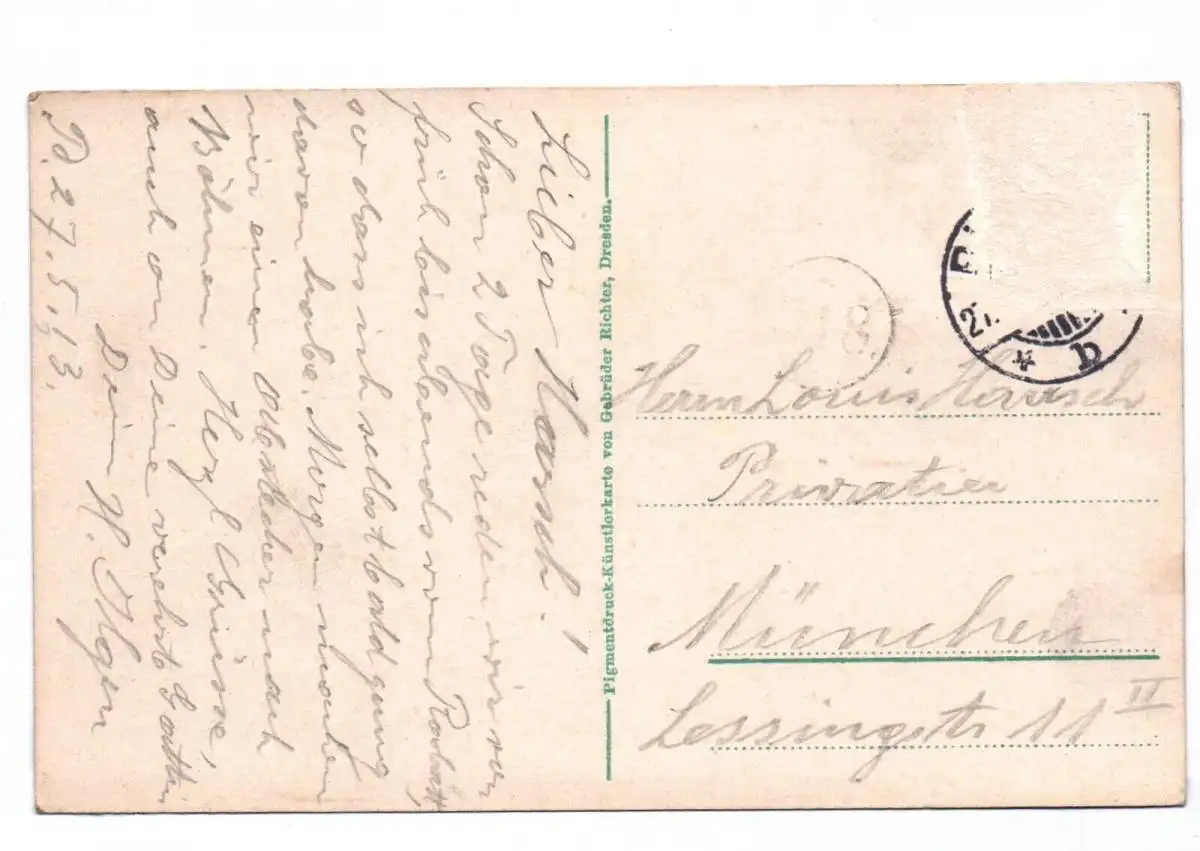 Lieber Harsch!
Schon 2 Tage reden wir von
früh bis abends vom Rabatt,
so dass ich selbst bald genug
davon habe. Morgen machen
wir einen Abstecher nach
Böhmen. Herzl. Grüsse,
auch an Deine verehrte Gattin
Dein H.
B. 27.5.13.
Pigmentdruck-Künstlerkarte von Gebrüder Richter, Dresden.
27.
* b
Herrn Louis Harrsch
Privatier
München
Lessingstr 11 II